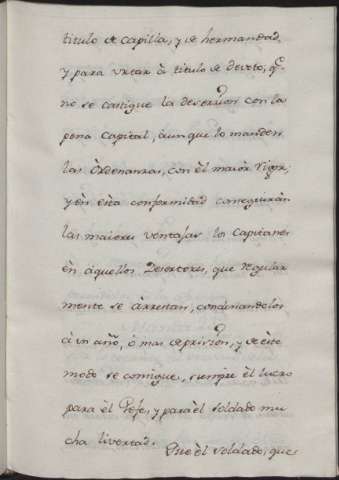 titulo de capilla, y de hermandad,
y para vntar à titulo de devoto, q.e
no se castigue la desercion con la
pena capital, aunque lo manden
las Ordenanzas, con èl maior rigor;
y èn èsta conformidad conseguiràn
las maiores ventajas los Capitanes
èn àquellos Desertores, que regular
mente se àrrestan, condenandolos
à vn año, ò mas de prision, y de èste
modo se consigue, siempre èl lucro
para èl Gefe, y para èl soldado mu
cha livertad.
Que èl soldado, que